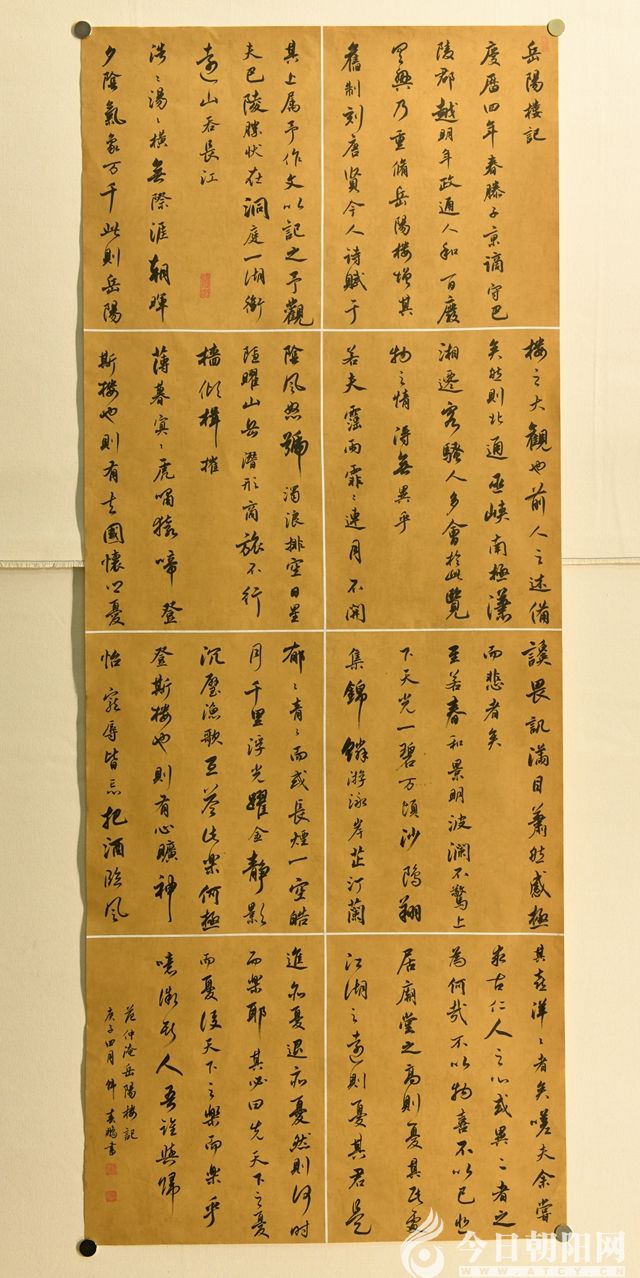 岳陽楼記
慶曆四年春滕子京謫守巴
陵郡越明年政通人和百廢
具興乃重脩岳陽楼增其
舊制刻唐賢今人詩賦于
其上属予作文以記之予觀
夫巴陵勝狀在洞庭一湖銜
遠山吞長江
浩〻湯〻橫無際涯朝暉
夕陰氣象万千此則岳陽
楼之大觀也前人之述備
矣然則北通巫峽南極瀟
湘遷客騷人多會於此覽
物之情得無異乎
若夫霪雨霏〻連月不開
陰風怒號濁浪排空日星
隱曜山岳潛形商旅不行
檣傾楫摧
薄暮冥〻虎嘯猿啼登
斯楼也則有去國懷鄉憂
讒畏訊滿目蕭然感極
而悲者矣
至若春和景明波瀾不驚上
下天光一碧万頃沙鷗翔
集錦鱗游泳岸芷汀蘭
郁〻青〻而或長煙一空皓
月千里浮光耀金靜影
沉壁漁歌互荅此樂何極
登斯楼也則有心曠神
怡寵辱皆忘把酒臨風
其喜洋〻者矣嗟夫余嘗
求古仁人之心或異二者之
為何哉不以物喜不以己悲
居廟堂之高則憂其民處
江湖之遠則憂其君是
進亦憂退亦憂然則何時
而樂耶其必曰先天下之憂
而憂後天下之樂而樂乎
噫微斯人吾誰與歸
范仲淹岳陽楼記
庚子四月 書
今日朝阳网
WWW.ATCY.CN